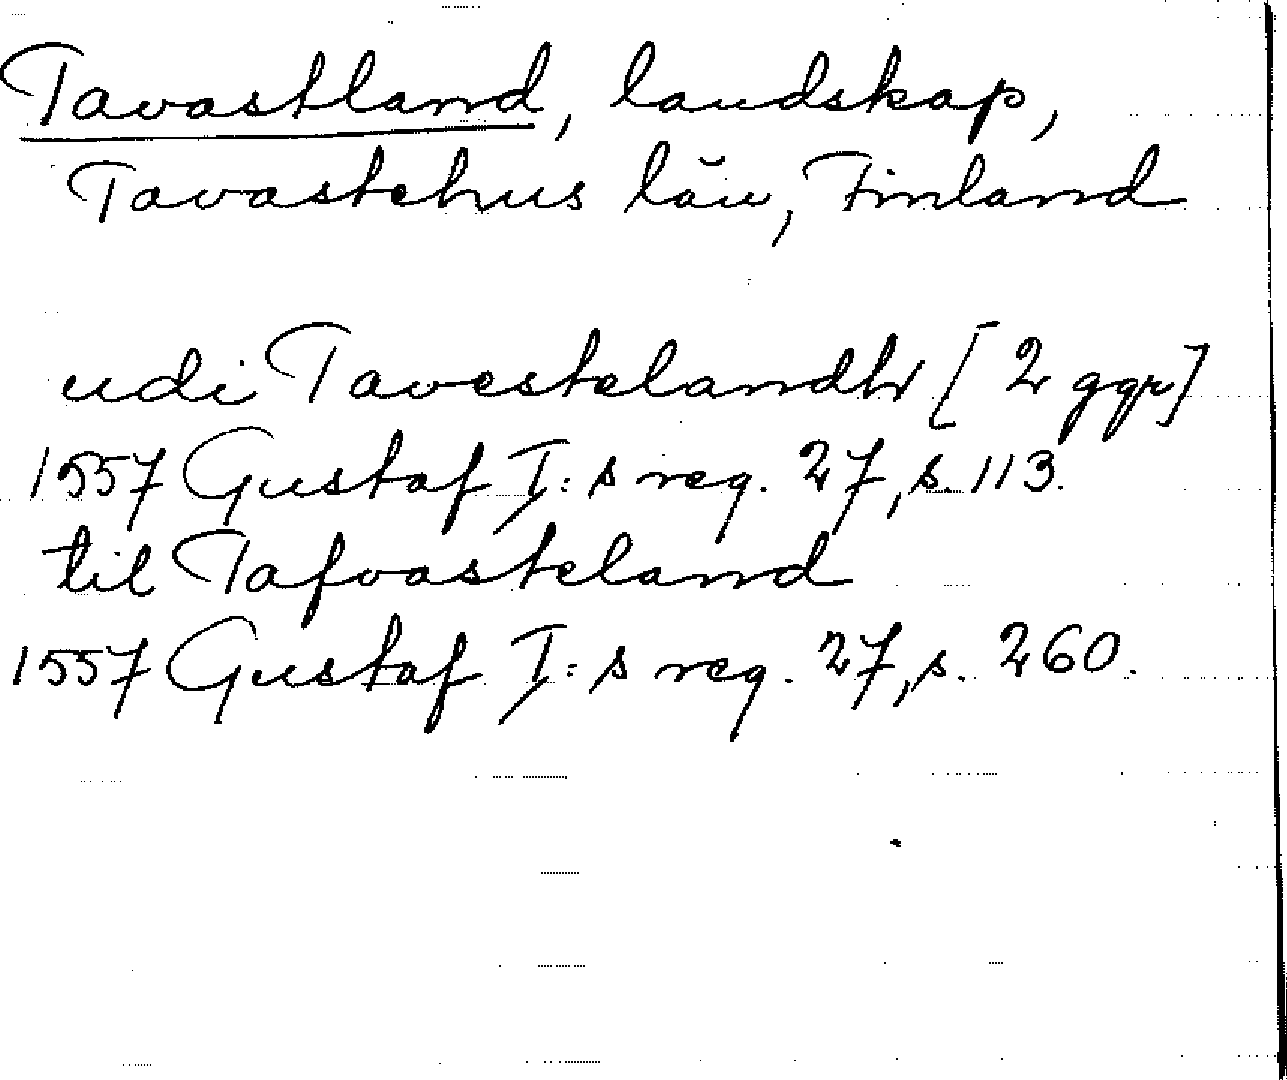 Tavastland, landskap,
Tavastehus län, Finland
udi Tavestelandh [2 ggr]
1557 Gustaf I:s reg. 27, s. 113.
til Tafvasteland
1557 Gustaf I:s reg. 27, s. 260.